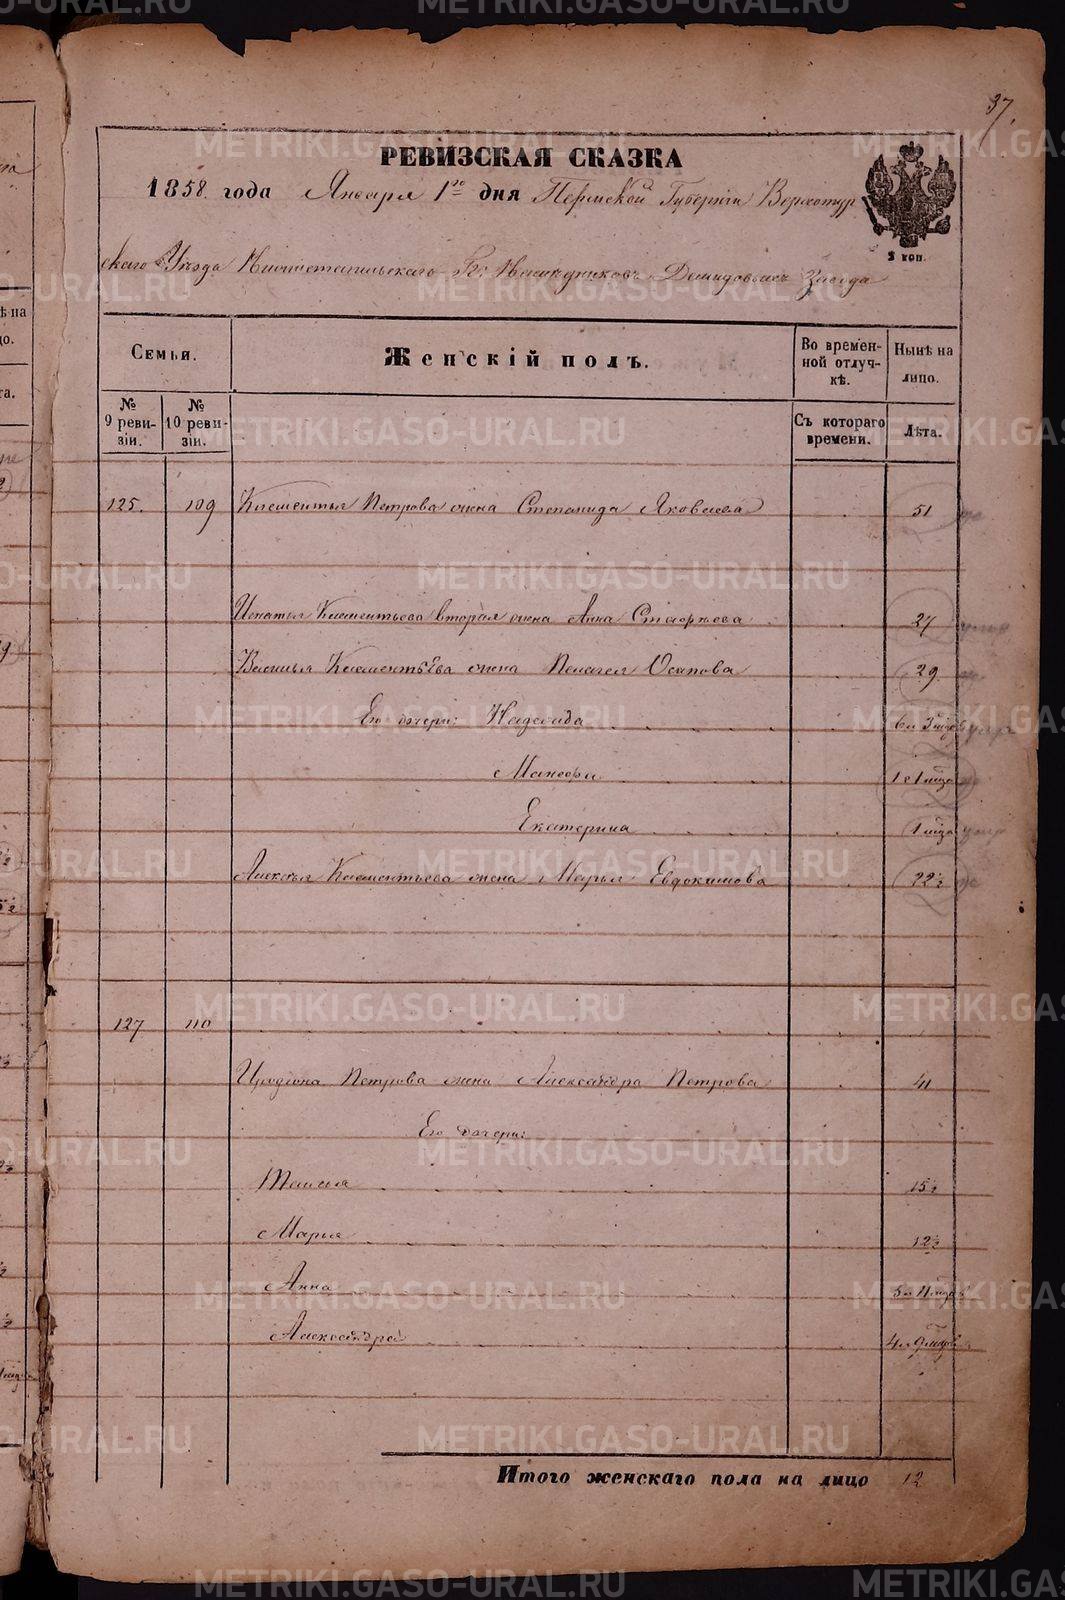 37.
РЕВИЗСКАЯ СКАЗКА
1858 года Января 1го дня Пермской Губерніи Верхотур
скаго Уѣзда Нижнетагильскаго Гг: Наслѣдниковъ Демидовыхъ Завода
2 коп.
Семьи.
Женскій полъ.
Во времен-
ной отлуч-
кѣ.
Нынѣ на
лицо.
№ 9 реви-
зіи.
№ 10 реви-
зіи.
Съ котораго
времени.
Лѣта.
125. 109 Клементья Петрова жена Степанида Яковлева 51
Игнатья Клементьева вторая жена Анна 27
Василья Клементьева жена Пелагея Осипова 29.
Его дочери: 6 л 3 мцовъ
1 г 1 мца
Екатерина 1 мца
Алексѣя Клементьева жена Марья Евдокимова 22½
127 110
Иродіона Петрова жена Александра Петрова 41
Его дочери:
Таисья 15½
Марья 12½
Анна 5 л 11 мцовъ
Александра 4 л 9 мцовъ
Итого женскаго пола на лицо 12
METRIKI.GASO-URAL.RU